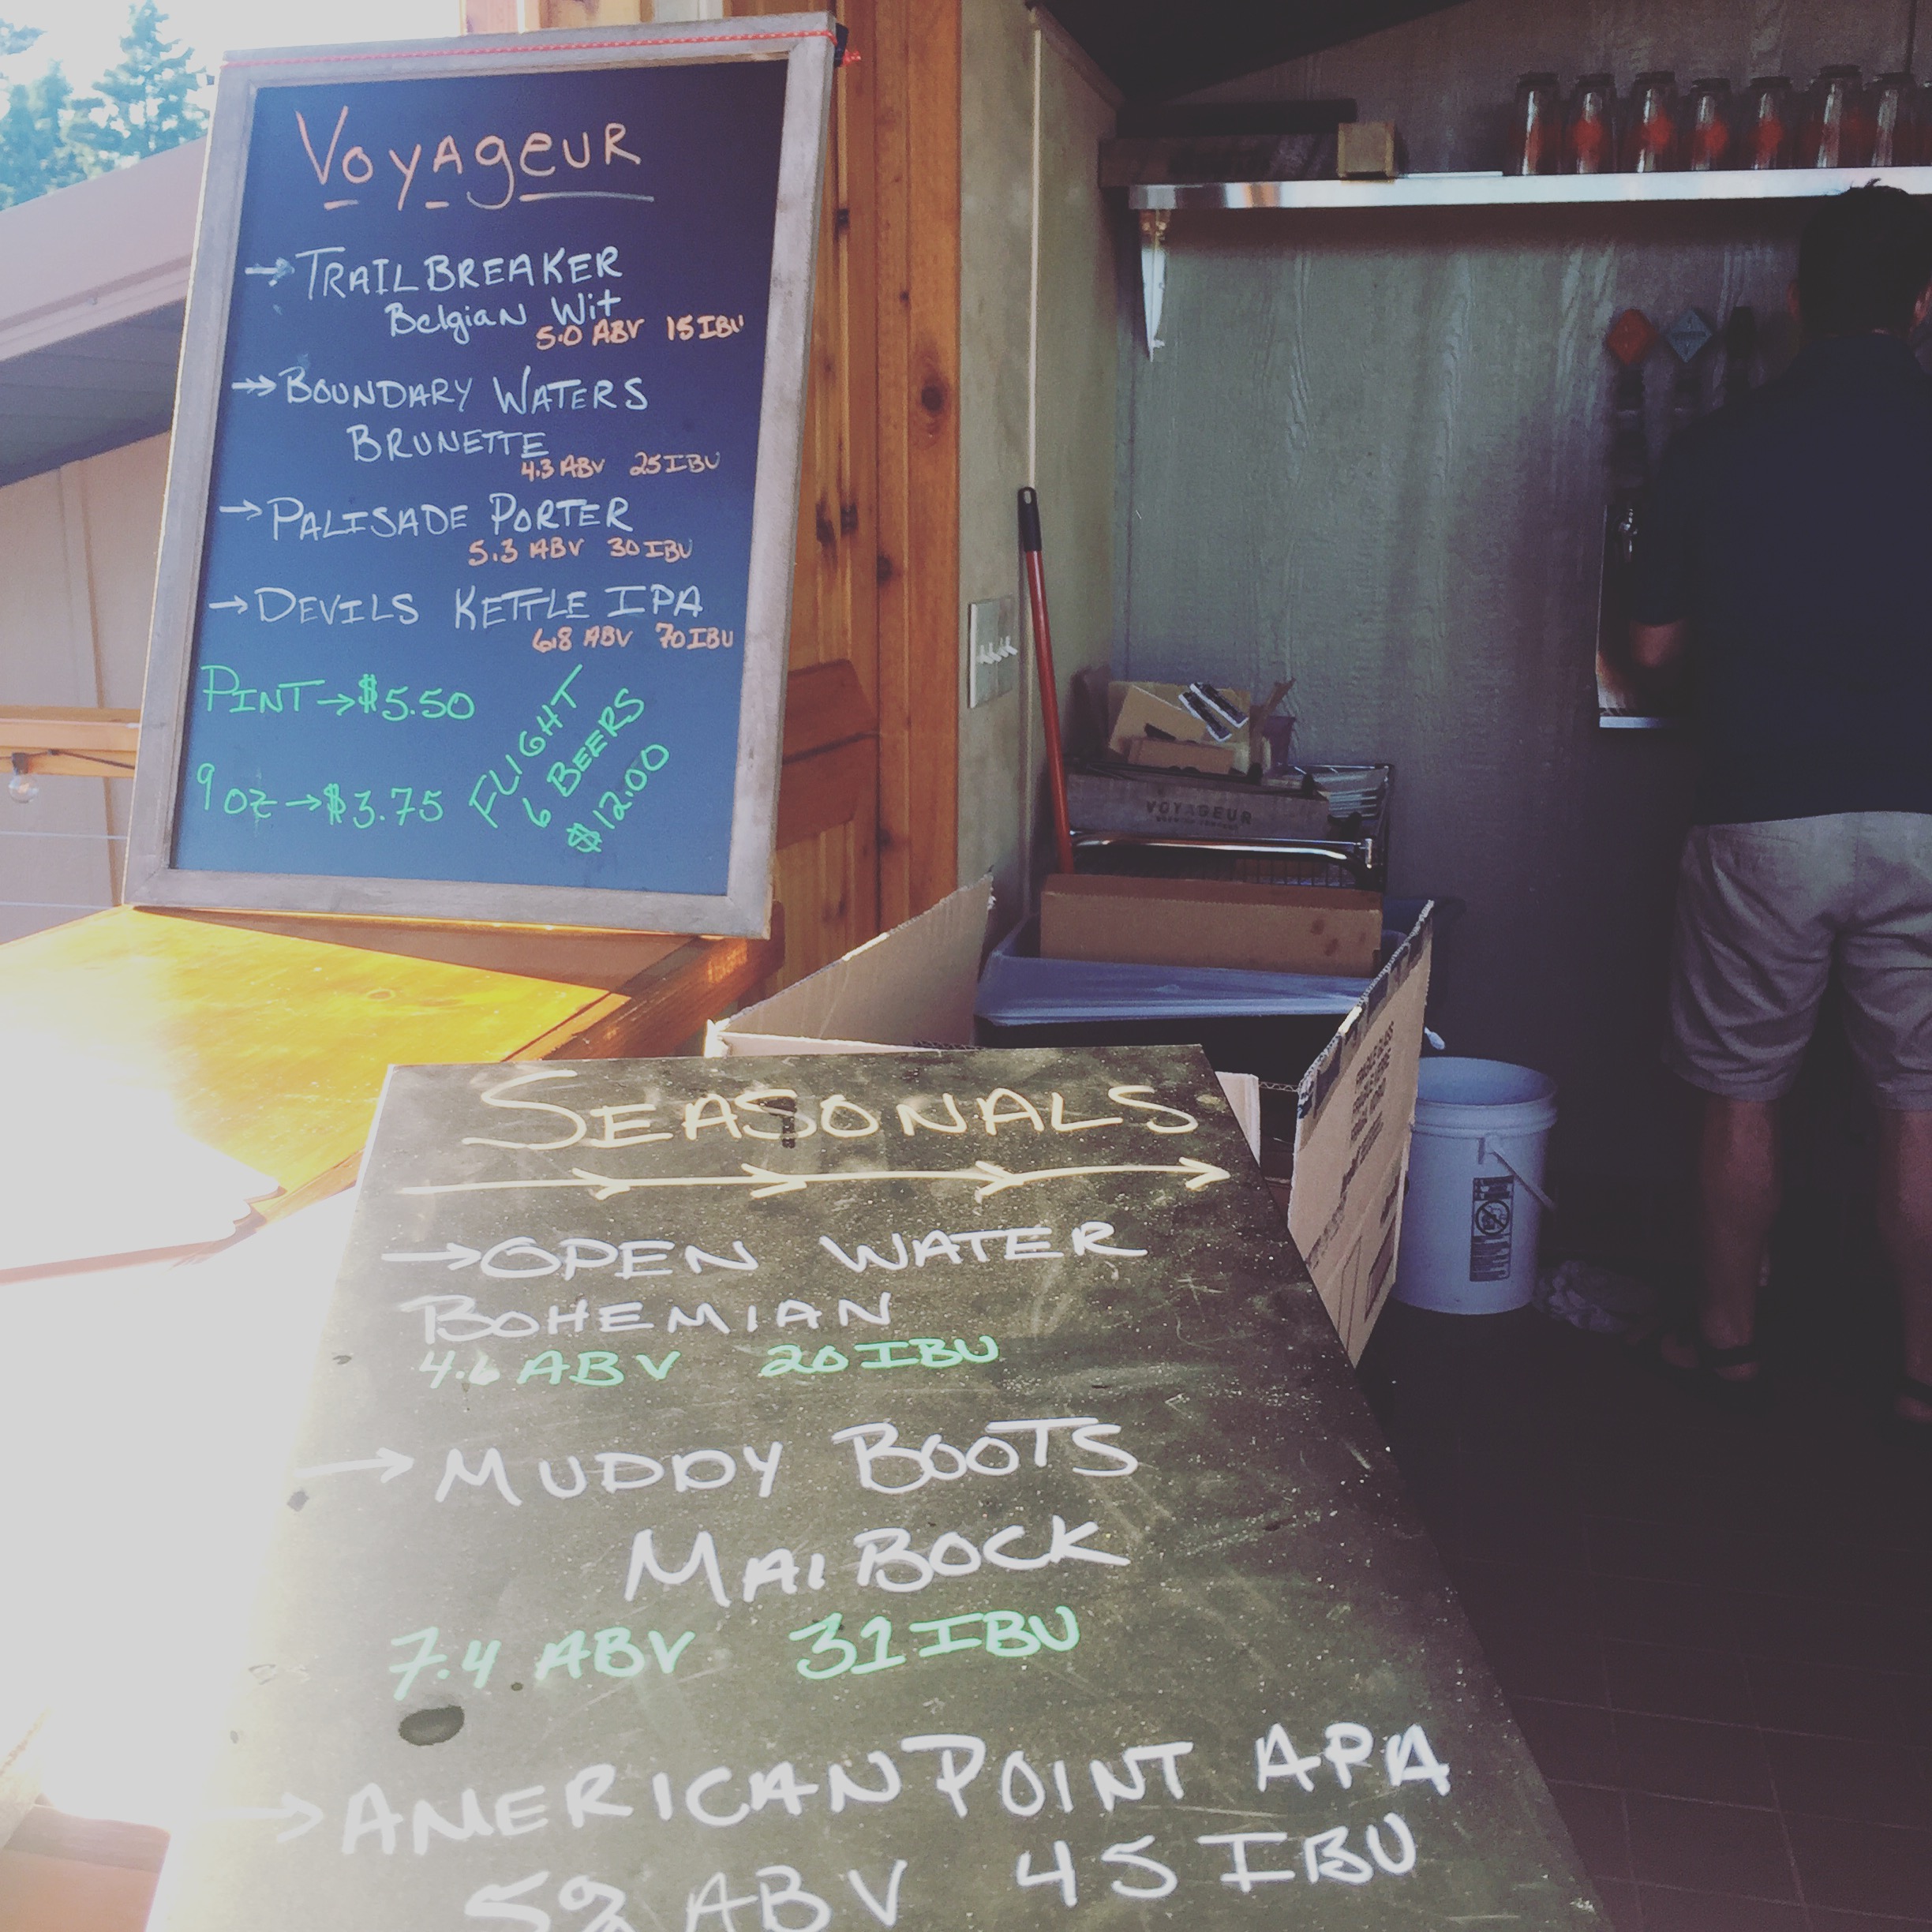 VOYAGEUR
→ TRAILBREAKER
Belgian Wit
5.0 ABV 15 IBU
→ BOUNDARY WATERS
BRUNETTE
4.3 ABV 25 IBU
→ PALISADE PORTER
5.3 ABV 30 IBU
→ DEVILS KETTLE IPA
6.8 ABV 70 IBU
PINT → $5.50
9 oz → $3.75
FLIGHT
6 BEERS
$12.00
VOYAGEUR
SEASONALS
→ OPEN WATER
BOHEMIAN
4.6 ABV 20 IBU
→ MUDDY BOOTS
MAIBOCK
7.4 ABV 31 IBU
→ AMERICAN POINT APA
ABV 45 IBU